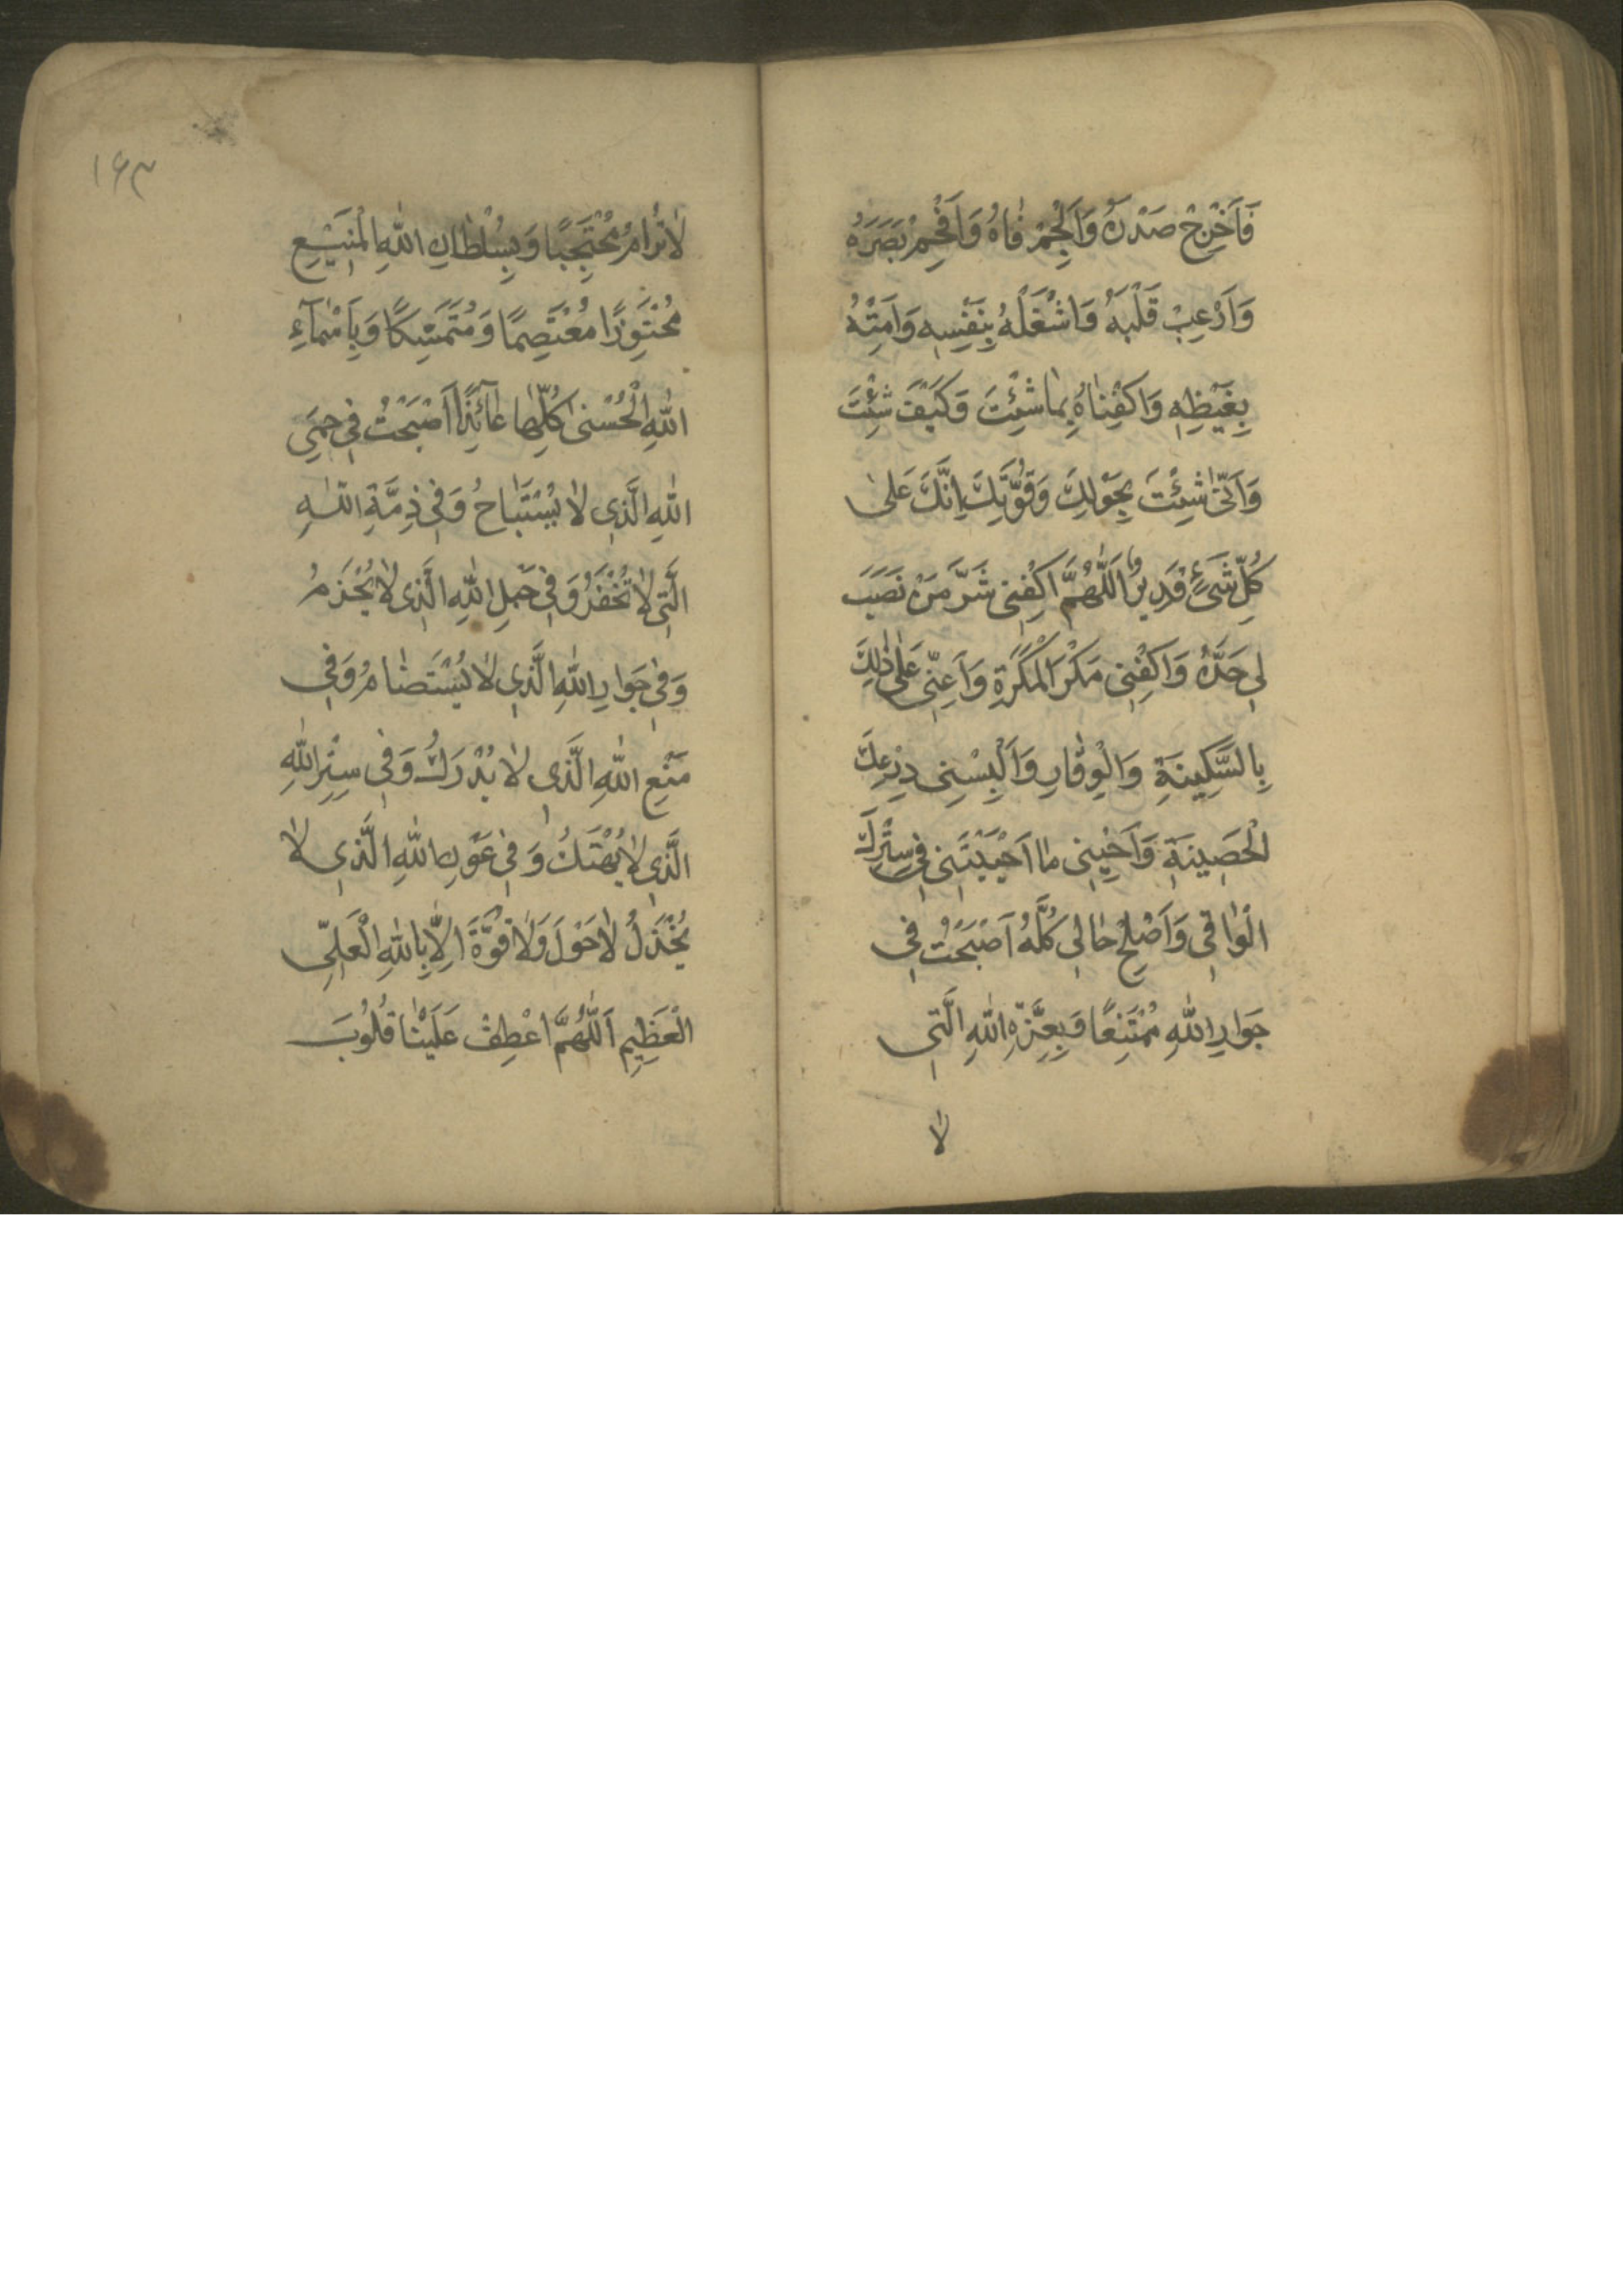 فَاَحْرِجْ صَدْرَهُ وَاَلْجِمْ فاهُ وَاَفْحِمْ بَصَرَهُ
وَاَرْعِبْ قَلْبَهُ وَاشْغَلْهُ بِنَفْسِهِ وَاَمِتْهُ
بِغَيْظِهِ وَاكْفِناهُ بِما شِئْتَ وَكَيْفَ شِئْتَ
وَاَنّى شِئْتَ بِحَوْلِكَ وَقُوَّتِكَ اِنَّكَ عَلى
كُلِّ شَيْءٍ قَدِيرٌ اَللّهُمَّ اكْفِنِي شَرَّ مَنْ نَصَبَ
لِي حَدَّهُ وَاكْفِنِي مَكْرَ الْمَكَرَةِ وَاَعِنِّي عَلى ذلِكَ
بِالسَّكِينَةِ وَالْوِقارِ وَاَلْبِسْنِي دِرْعِكَ
الْحَصِينَةِ وَاَحْيِنِي ما اَحْيَيْتَنِي فِي سِتْرِكَ
الْواقِي وَاَصْلِحْ حالِي كُلَّهُ اَصْبَحْتُ فِي
جَوارِ اللهِ مُمْتَنِعًا وَبِعِزَّةِ اللهِ الَّتِي
لا
١۶٣
لا تُرامُ مُحْتَجِبًا وَبِسُلْطانِ اللهِ الْمَنِيعِ
مُعْتَصِمًا وَمُتَمَسِّكًا وَبِاَسْمآءِ
اللهِ الْحُسْنى كُلِّها عآئِذًا اَصْبَحْتُ فِي حِمَى
اللهِ الَّذِي لا يُسْتَباحُ وَفِي ذِمَّةِ اللهِ
الَّتِي لا تُخْفَرُ وَفِي حَبْلِ اللهِ الَّذِي لا يُجْذَمُ
وَفِي جَوارِ اللهِ الَّذِي لا يُسْتَضامُ وَفِي
مَنْعِ اللهِ الَّذِي لا يُدْرَكُ وَفِي سِتْرِ اللهِ
الَّذِي لا يُهْتَكُ وَفِي عَوْنِ اللهِ الَّذِي لا
يُخْذَلُ لا حَوْلَ وَلا قُوَّةَ اِلاّ بِاللهِ الْعَلِيِّ
الْعَظِيمِ اَللّهُمَّ اعْطِفْ عَلَيْنا قُلُوبَ